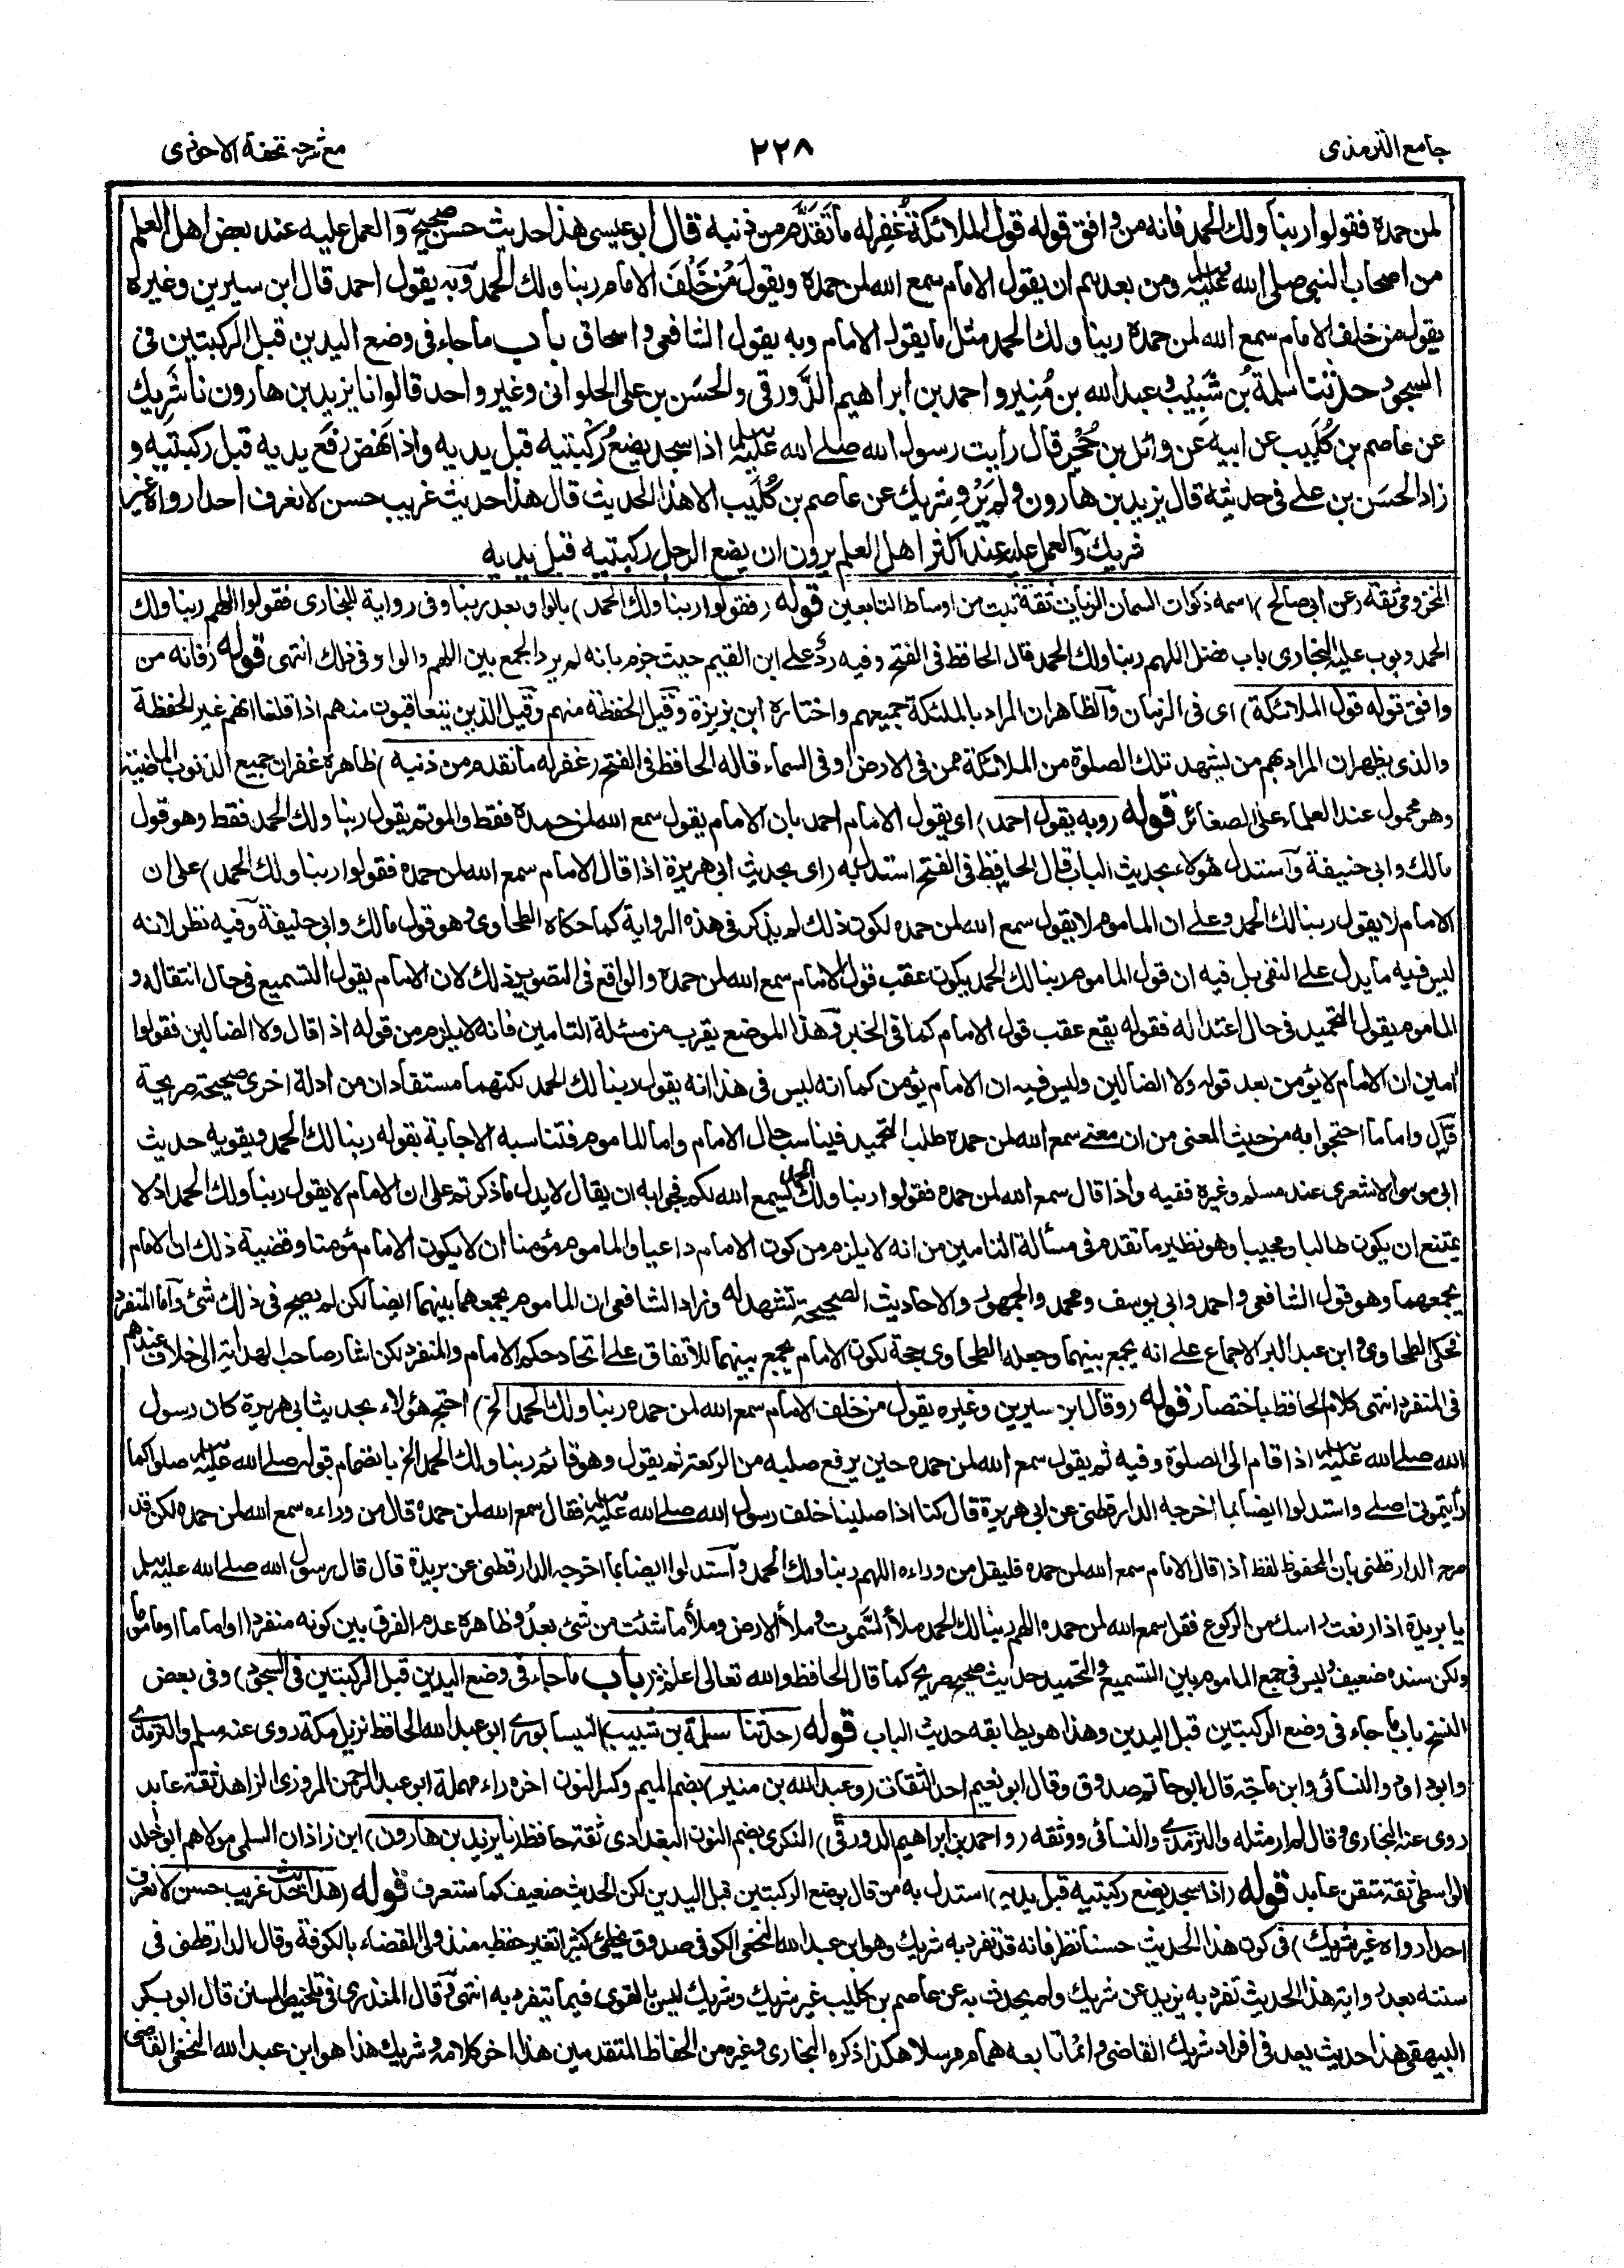 جامع الترمذى
٢٢٨
مع شرحه تحفة الاحوذى
لمن حمده فقولوا ربنا ولك الحمد فانه من وافق قوله قول الملائكة غُفِر له ما تَقَدَّم من ذنبه قال ابو عيسى هذا حديث حسن صحيح والعمل عليه عند بعض اهل العلم
من اصحاب النبى صلى الله عليه وسلم ومن بعدهم ان يقول الامام سمع الله لمن حمده ويقول مَنْ خَلْفَ الامام ربنا ولك الحمد وبه يقول احمد قال ابن سيرين وغيره
يقول من خلف الامام سمع الله لمن حمده ربنا ولك الحمد مثل ما يقول الامام وبه يقول الشافعى واسحاق باب ما جاء فى وضع اليدين قبل الركبتين فى
السجود حدثنا سلمة بن شَبِيب وعبد الله بن مُنِير واحمد بن ابراهيم الدَّورقى والحسَن بن على الحلوانى وغير واحد قالوا نا يزيد بن هارون نا شَرِيك
عن عاصم بن كُلَيب عن ابيه عن وائل بن حُجْر قال رأيت رسول الله صلے الله عليه وسلم اذا سجد يضع رُكبتيه قبل يديه واذا نهَض رفَع يديه قبل ركبتيه و
زاد الحسَن بن علے فى حديثه قال يزيد بن هارون ولم يَرْوِ شريك عن عاصم بن كُلَيب الا هذا الحديث قال هذا حديث غريب حسن لا نعرف احدا رواه غير
شريك والعمل عليه عند اكثر اهل العلم يرون ان يضع الرجل ركبتيه قبل يديه
المخزومى ثقة (عن ابى صالح) اسمه ذكوات السمان الزيات ثقة ثبت من اوساط التابعين قوله (فقولوا ربنا ولك الحمد) بالواو بعد ربنا وفى رواية للبخارى فقولوا اللهم ربنا ولك
الحمد وبوب عليه البخارى باب فضل اللهم ربنا ولك الحمد قال الحافظ فى الفتح وفيه ردٌ على ابن القيم حيث جزم بانه لم يرد الجمع بين اللهم والواو فى ذلك انتهى قوله (فانه من
وافق قوله قول الملائكة) اى فى الزمان والظاهر ان المراد بالملئكة جميعهم واختاره ابن بزيزة وقيل الحفظة منهم وقيل الذين يتعاقبون منهم اذا قلنا انهم غير الحفظة
والذى يظهر ان المراد بهم من يشهد تلك الصلوة من الملائكة ممن فى الارض او فى السماء قاله الحافظ فى الفتح (غفر له ما تقدم من ذنبه) ظاهره غفران جميع الذنوب الماضية
وهو محمول عند العلماء على الصغائر قوله (وبه يقول احمد) اى يقول الامام احمد بان الامام يقول سمع الله لمن حمده فقط والموتم يقول ربنا ولك الحمد فقط وهو قول
مالك وابى حنيفة وآستدل هؤلاء بحديث الباب قال الحافظ فى الفتح استدل به (اى بحديث ابى هريرة اذا قال الامام سمع الله لمن حمده فقولوا ربنا ولك الحمد) على ان
الامام لا يقول ربنا لك الحمد وعلى ان الماموم لا يقول سمع الله لمن حمده لكون ذلك لم يذكر فى هذه الرواية كما حكاه الطحاوى وهو قول مالك وابى حنيفة وفيه نظر لانه
ليس فيه ما يدل على النفى بل فيه ان قول الماموم ربنا لك الحمد يكون عقب قول الامام سمع الله لمن حمده والواقع فى التصوير ذلك لان الامام يقول التسميع فى حال انتقاله و
الماموم يقول التحميد فى حال اعتداله فقوله يقع عقب قول الامام كما فى الخبر وهذا الموضع يقرب من مسئلة التامين فانه لا يلزم من قوله اذا قال ولا الضالين فقولوا
امين ان الامام لا يؤمن بعد قوله ولا الضالين وليس فيه ان الامام يؤمن كما انه ليس فى هذا انه يقول ربنا لك الحمد لكنهما مستفادان من ادلة اخرى صحيحة صريحة
قال واما ما احتجوا به من حيث المعنى من ان معنے سمع الله لمن حمده طلب التحميد فيناسب حال الامام واما الماموم فتناسبه الاجابة بقوله ربنا لك الحمد ويقويه حديث
ابى موسى الاشعرى عند مسلم وغيره ففيه واذا قال سمع الله لمن حمده فقولوا ربنا ولك الحمد يسمع الله لكم فجوابه ان يقال لا يدل ما ذكرتم على ان الامام لا يقول ربنا ولك الحمد اذ لا
يمتنع ان يكون طالبا ومجيبا وهو نظير ما تقدم فى مسألة التامين من انه لا يلزم من كون الامام داعيا والماموم مؤمنا ان لا يكون الامام مؤمنا وقضية ذلك ان الامام
يجمعهما وهو قول الشافعى واحمد وابى يوسف ومحمد والجمهور والاحاديث الصحيحة تشهد له وزاد الشافعى ان الماموم يجمعهما بينهما ايضا لكن لم يصح فى ذلك شئ وآما المنفرد
فحكى الطحاوى وابن عبد البر الاجماع على انه يجمع بينهما وجعله الطحاوى حجة لكون الامام يجمع بينهما للاتفاق على اتحاد حكم الامام والمنفرد لكن اشار صاحب الهداية الى خلاف عندهم
فى المنفرد انتهى كلام الحافظ باختصار قوله (وقال ابن سيرين وغيره يقول من خلف الامام سمع الله لمن حمده ربنا ولك الحمد الخ) احتج هؤلاء بحديث ابى هريرة كان رسول
الله صلے الله عليه وسلم اذا قام الى الصلوة وفيه ثم يقول سمع الله لمن حمده حين يرفع صلبه من الركعة ثم يقول وهو قائم ربنا ولك الحمد الخ بانضمام قوله صلے الله عليه وسلم صلوا كما
رأيتمونى اصلے واستدلوا ايضا بما اخرجه الدارقطنى عن ابى هريرة قال كنا اذا صلينا خلف رسول الله صلے الله عليه وسلم فقال سمع الله لمن حمده قال من وراءه سمع الله لمن حمده لكن قد
صرح الدارقطنى بان المحفوظ لفظ اذا قال الامام سمع الله لمن حمده فليقل من وراءه اللهم ربنا ولك الحمد وآستدلوا ايضا بما اخرجه الدارقطنى عن بريدة قال قال رسول الله صلے الله عليه وسلم
يا بريدة اذا رفعت راسك من الركوع فقل سمع الله لمن حمده اللهم ربنا لك الحمد ملأ السَّموت وملأ الارض وملأ ما شئت من شئ بعدُ وظاهره عدم الفرق بين كونه منفردا او اماما او ماموما
ولكن سنده ضعيف وليس فى جمع الماموم بين التسميع والتحميد حديث صحيح صريح كما قال الحافظ والله تعالى اعلم (باب ما جاء فى وضع اليدين قبل الركبتين فى السجود) وفى بعض
النسخ باب ما جاء فى وضع الركبتين قبل اليدين وهذا هو يطابقه حديث الباب قوله (حدثنا سلمة بن شبيب) النيسابورى ابو عبد الله الحافظ نزيل مكة روى عنه مسلم والترمذى
وابو داود والنسائى وابن ماجة قال ابو حاتم صدوق وقال ابو نعيم احد الثقات (وعبد الله بن منير) بضم الميم وكسر النون اخره راء مهملة ابو عبد الرحمن المروزى الزاهد ثقة عابد
روى عنه البخارى وقال لم ار مثله والترمذى والنسائى ووثقه (واحمد بن ابراهيم الدورقى) النكرى بضم النون البغدادى ثقة حافظ (نا يزيد بن هارون) ابن زاذان السلمى مولاهم ابو خالد
الواسطى ثقة متقن عابد قوله (اذا سجد يضع ركبتيه قبل يديه) استدل به من قال بوضع الركبتين قبل اليدين لكن الحديث ضعيف كما ستعرف قوله (هذا حديث غريب حسن لا نعرف
احدا رواه غير شريك) فى كون هذا الحديث حسنا نظر فانه قد تفرد به شريك وهو ابن عبد الله النخعى الكوفى صدوق يخطئ كثيرا تغير حفظه منذ ولى القضاء بالكوفة وقال الدارقطنى فى
سننه بعد رواية هذا الحديث تفرد به يزيد عن شريك ولم يحدث به عن عاصم بن كليب غير شريك وشريك ليس بالقوى فيما يتفرد به انتهى وقال المنذرى فى تلخيص السنن قال ابو بكر
البيهقى هذا حديث يعد فى افراد شريك القاضى وانما تابعه همام مرسلا هكذا ذكره البخارى وغيره من الحفاظ المتقدمين هذا اخر كلامه وشريك هذا هو ابن عبد الله النخعى القاضى